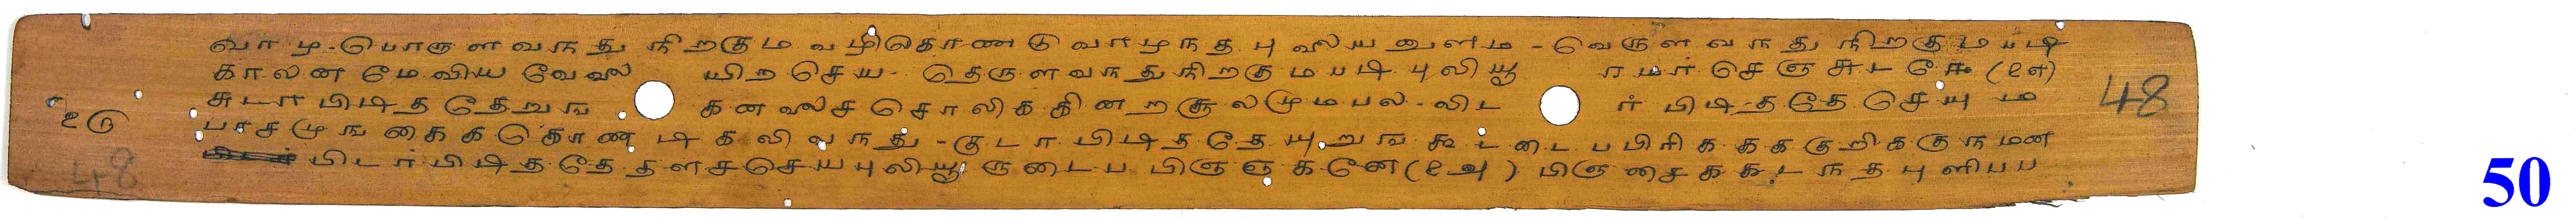 வாழ-பொருளவநது நிறகும வழிகொணடு வாழநத புலியவளம - வெருளவநது நிறகுமபடி
காலன மேவிய வேலை யிறசெய- தெருளவநதுநிறகுமபடி புலியூ ரமர்செஞசுடரே (௨௭)
௨௫ சுடர்பிடித தேறுங கனலசசொலிககினறசூலமுமபல-லிட ர்பிடிததே செயும 48
பாசமுங கைககொணடிகலிவநது-குடர்பிடிததேயுறுங கூடடைபபிரிககககுறிககுநமன
48 பிடர்பிடிததே தளசசெயபுலியூருடைப பிஞஞகனே (௨௮) பிஞசைககடநதபுளிபப
50